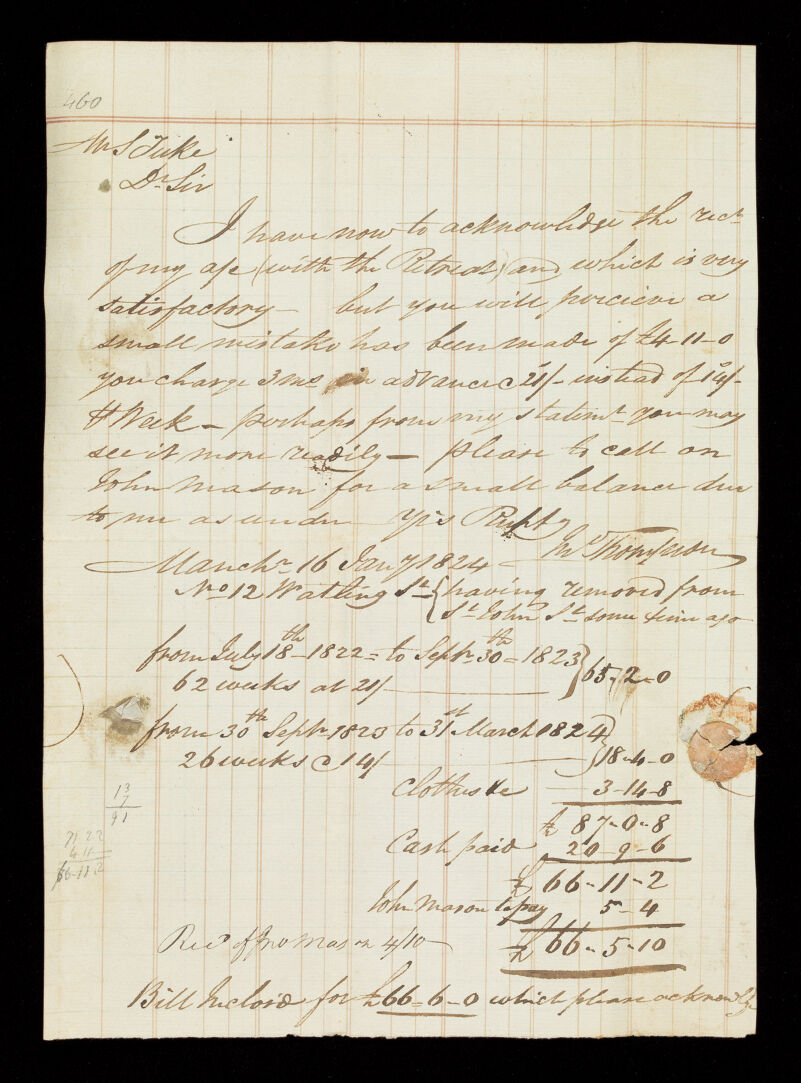 460
Mr S Tuke
Dr Sir
I have now to acknowledge the rect
of my a/c (with the Retreat) and which is very
satisfactory – but you will percieve a
small mistake has been made of £4-11-0
you charge 3 ms in advance @ 21/- instead of 14/-
⅌ Week – perhaps from my statemt you may
see it more readily – please to call on
John Mason for a small balance due
to me as under Yrs Respty
Wm Thompson
Manchr 16 Jany 1824
No 12 Watling St {having removed from
St John St some time ago
from July 18th – 1822 = to Septr 30th = 1823
62 weeks at 21/ } 65-2-0
from 30th Septr 1823 to 31st March 1824
26 weeks @ 14/ } 18-4-0
Clothes &c 3-14-8
£ 87-0-8
Cash paid 20-9-6
£ 66-11-2
John Mason to pay 5-4
Recd of Jno Mason 4/10 £ 66-5-10
Bill Inclosd for £66-6-0 which please acknowlge
13
7
91
71 22
4 11
66-11 2